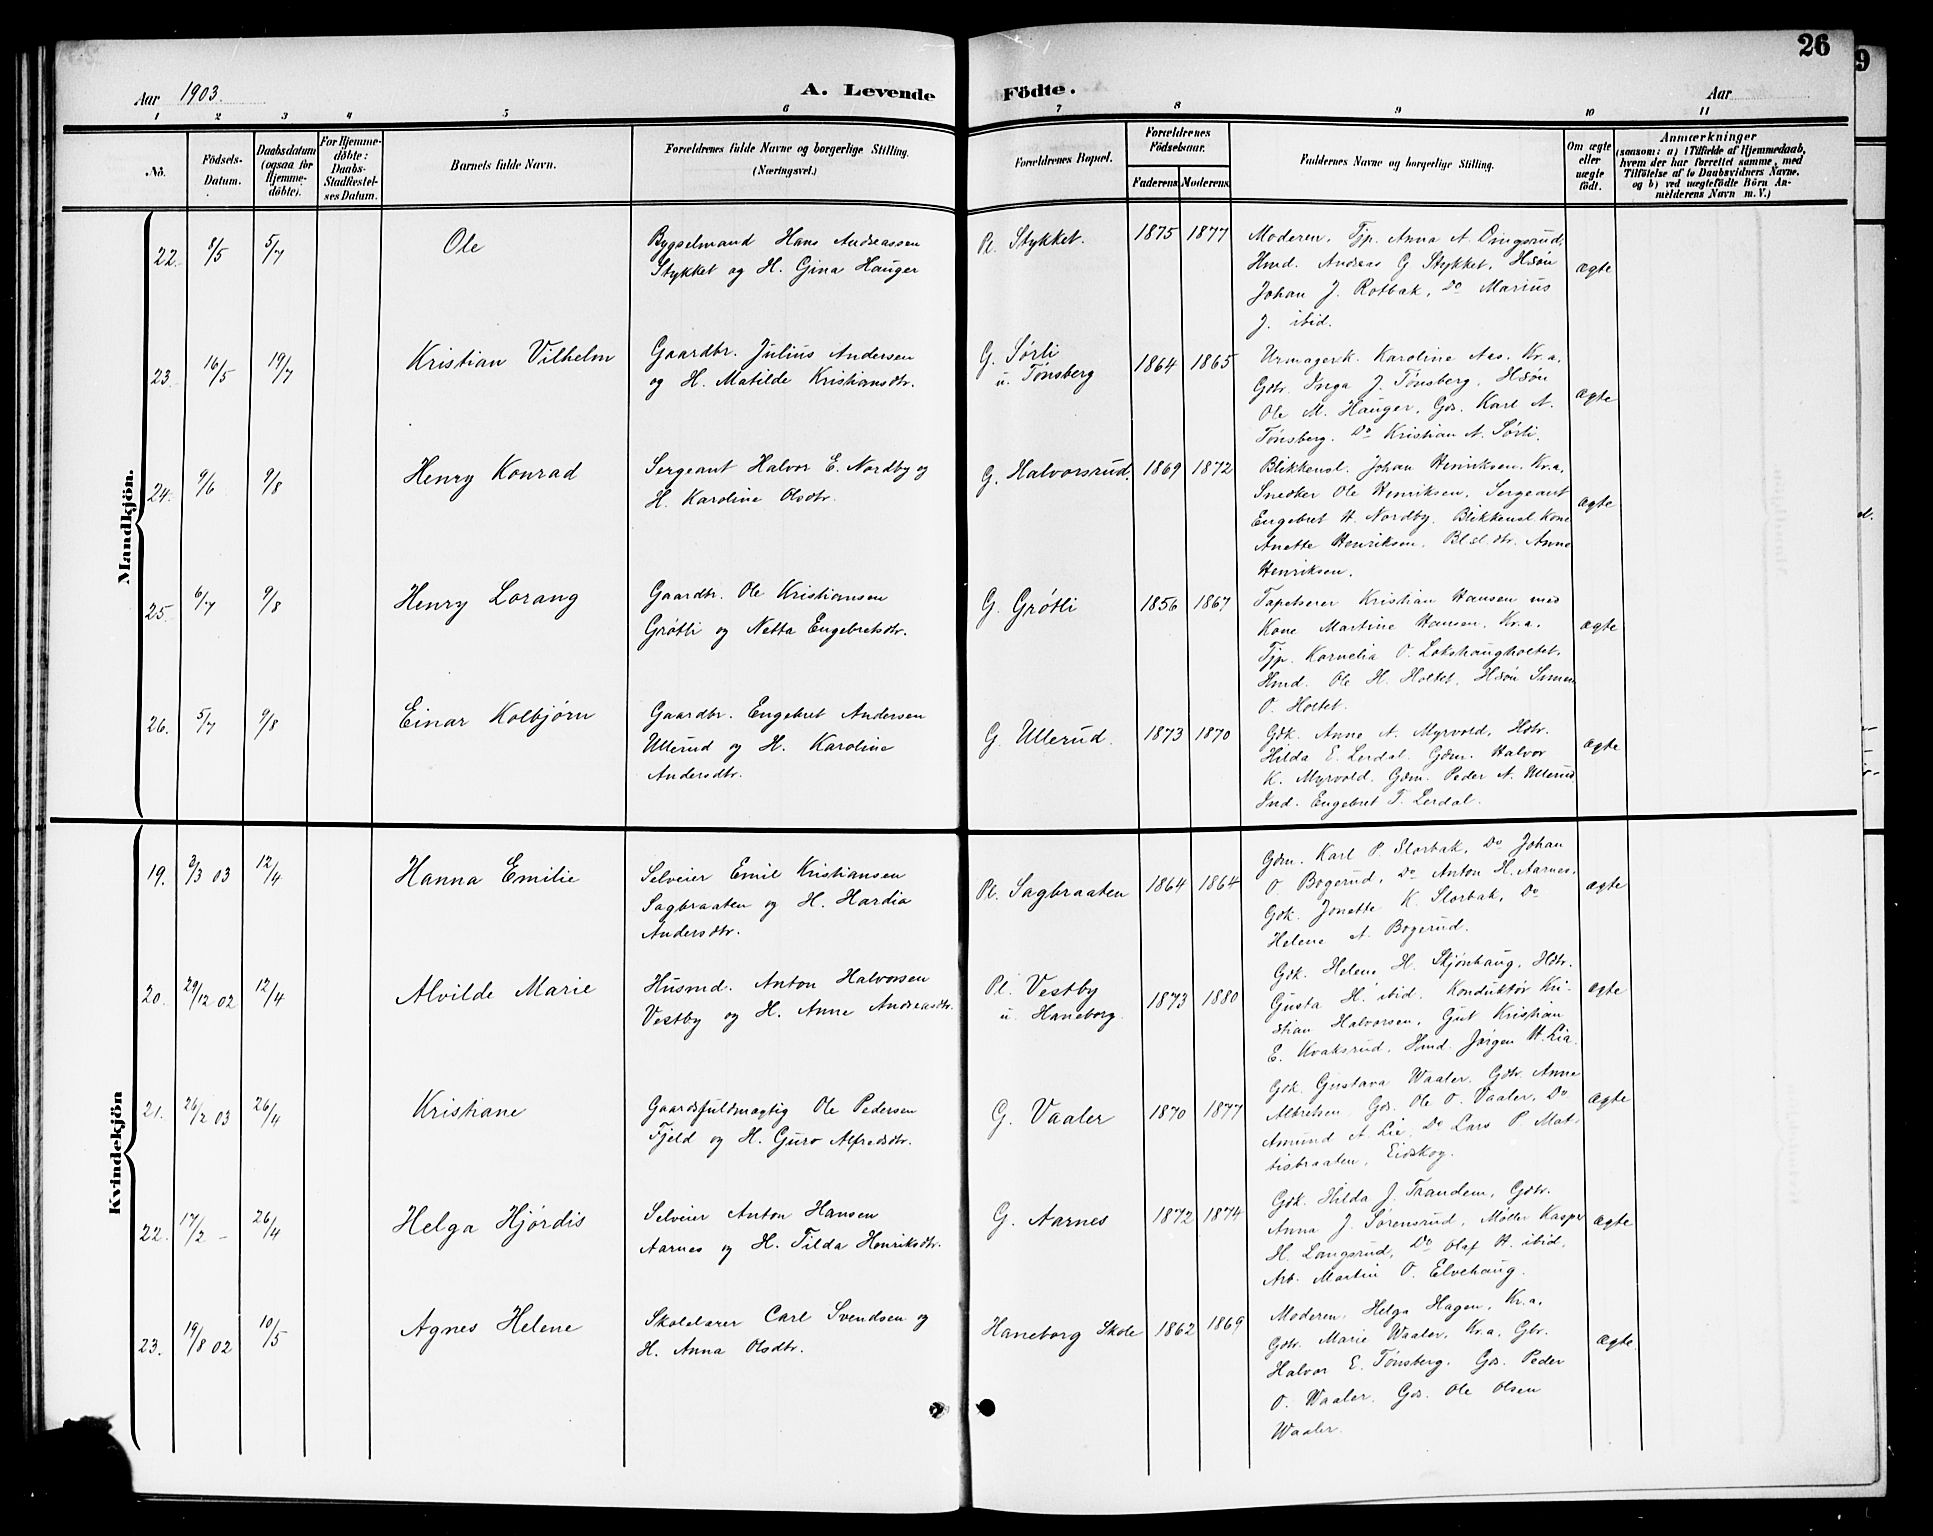 26
9
Aar 1903.
A. Levende
Födte.
Aar
1 2 3 4 5 6 7 8 9 10 11
No.
Födsels-
Datum.
Daabsdatum
(ogsaa for
Hjemme-
döbte).
For Hjemme-
döbte:
Daabs-
Stadfæstel-
ses Datum.
Barnets fulde Navn.
Forældrenes fulde Navne og borgerlige Stilling.
(Næringsvei.)
Forældrenes Bopæl.
Forældrenes
Födselsaar.
Faderens.
Moderens.
Faddernes Navne og borgerlige Stilling.
Om ægte
eller
uægte
födt.
Anmærkninger
(saasom: a) i Tilfælde af Hjemmedaab,
hvem der har forrettet samme, med
Tilföielse af to Daabsvidners Navne,
og b) ved uægtefödte Börn An-
melderens Navn m. V.)
Mandkjön.
22. 8/5 5/7
Ole
Bygselmand Hans Andreassen
Stykket og H. Gina Hauger
Pl. Stykket.
1875 1877
Moderen, Tjp. Anna A. Dingsrud,
Hmd. Andreas G Stykket, Hsön
Johan J. Rotbak, Do Marius
J. ibid.
ægte
23. 16/5 19/7
Kristian Vilhelm
Gaardbr. Julius Andersen
og H. Matilde Kristiansdtr.
G. Sørli
u. Tønsberg
1864 1865
Urmagerk. Karoline Aas, Kr.a,
Gdtr. Inga J. Tønsberg, Hsön
Ole M. Hauger, Gds. Karl A.
Tønsberg. Do Kristian A. Sørli.
ægte
24. 9/6 9/8
Henry Konrad
Sergeant Halvor E. Nordby og
H. Karoline Olsdtr.
G. Halvorsrud.
1869 1872
Blikkensl. Johan Henriksen, Kr.a,
Snedker Ole Henriksen, Sergeant
Engebret H. Nordby. Blikkensl. Kone
Anette Henriksen, Bl.sl.dtr. Anna
Henriksen.
ægte
25. 6/7 9/8
Henry Lorang
Gaardbr. Ole Kristiansen
Grøtli og Netta Engebretsdtr.
G. Grøtli
1856 1867
Tapetserer Kristian Hansen med
Kone Martine Hansen, Kr.a,
Tjp. Kornelia O. Lokshaugholtet,
Hmd. Ole H. Holtet, Hsön Simen
O. Holtet.
ægte
26. 5/7 9/8
Einar Kolbjørn
Gaardbr. Engebret Andersen
Ullerud og H. Karoline
Andersdtr.
G. Ullerud.
1873 1870
Gdk. Anne A. Myrvold, Hdtr.
Hilda E. Lerdal. Gdm. Halvor
K. Myrvold. Gdm. Peder A. Ullerud
Ind. Engebret T. Lerdal.
ægte
Kvindekjön
19. 3/3 03 12/4
Hanna Emilie
Selveier Emil Kristiansen
Sagbraaten og H. Hardia
Andersdtr.
Pl. Sagbraaten
1864 1864
Gdm. Karl P. Slorbak, Do Johan
O. Bogerud, Do Anton H. Aarnes,
Gdk. Jonette K. Slorbak, Do
Helene A. Bogerud.
ægte
20. 29/12 02 12/4
Alvilde Marie
Husmd. Anton Halvorsen
Vestby og H. Anne Andreasdtr.
Pl. Vestby
u. Haneborg.
1873 1880
Gdk. Helene H. Skjønhaug, Hdtr.
Gusta H. ibid. Konduktør Kri-
stian Halvorsen, Gut Kristian
E. Kvaksrud, Hmd. Jørgen H. Lia.
ægte
21. 26/2 03 26/4
Kristiane
Gaardsfuldmægtig Ole Pedersen
Fjeld og H. Guro Alfredsdtr.
G. Vaaler
1870 1877
Gdk. Gustava Waaler. Gdtr. Anne
Albretsen, Gds. Ole O. Vaaler, Do
Amund A. Lie, Do Lars P. Mat-
tisbraaten, Eidskog.
ægte
22. 17/2 – 26/4
Helga Hjørdis
Selveier Anton Hansen
Aarnes og H. Tilda Henriksdtr.
G. Aarnes
1872 1874
Gdk. Hilda J. Trandem, Gdtr.
Anna J. Sørensrud, Møller Kasper
H. Langsrud, Do Olaf H. ibid,
Arb. Martin O. Elvehaug.
ægte
23. 19/8 02 10/5
Agnes Helene
Skolelærer Carl Svendsen og
H. Anna Olsdtr.
Haneborg Skole
1862 1869
Moderen, Helga Hagen, Kr.a,
Gdtr. Marie Waaler, Kr.a, Gbr.
Halvor E. Tønsberg. Gds. Peder
O. Waaler, Gds. Ole Olsen
Waaler.
ægte.